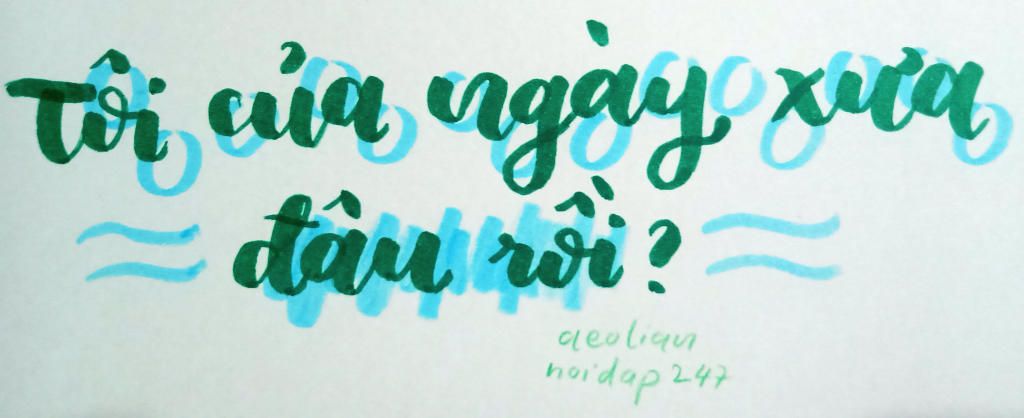 Tôi của ngày xưa
đâu rồi?
aeolian
noidap247